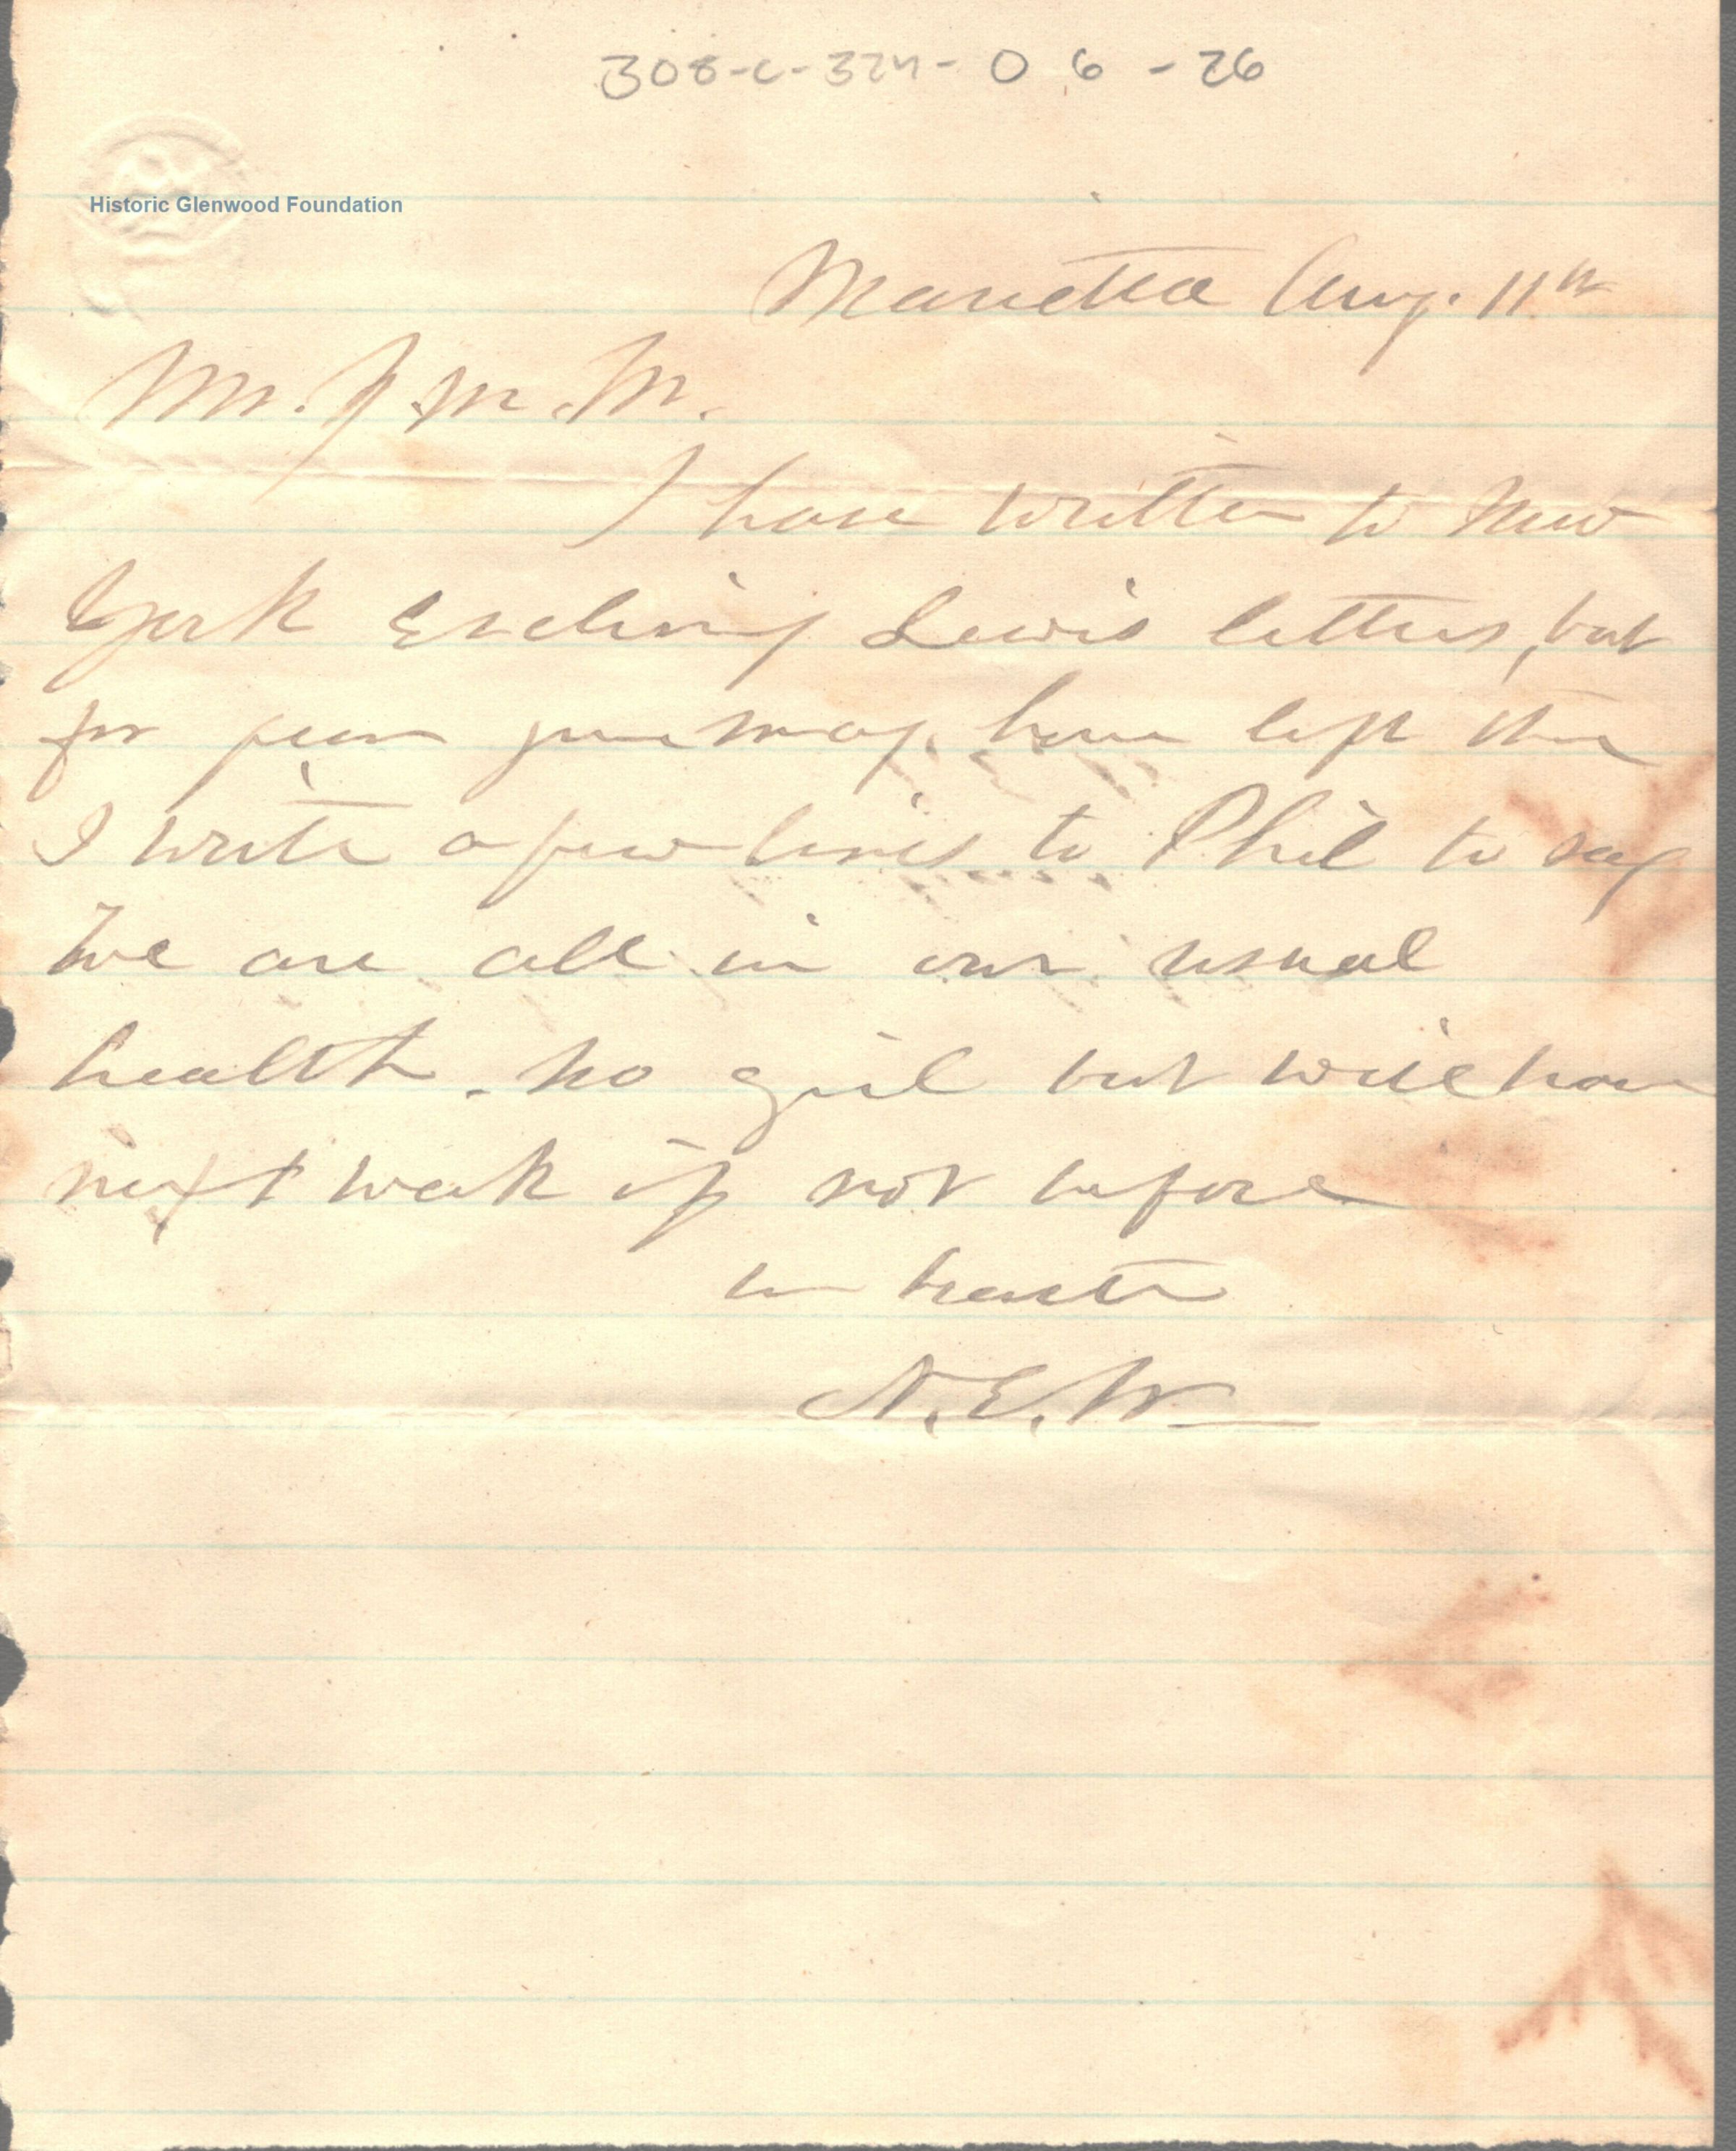 308-C-324-06-26
Historic Glenwood Foundation
Marietta Aug. 11th
Mr. J. M. M.
I have written to New
York Enclosing Lewis letters, but
for fear you may have left there
I write a few lines to Phil to say
we are all in our usual
health. no girl but will have
next week if not before
in haste
N. E. W.